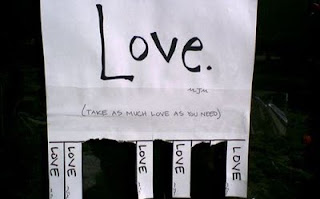 Love.
(TAKE AS MUCH LOVE AS YOU NEED)
LOVE
LOVE
LOVE
LOVE
LOVE